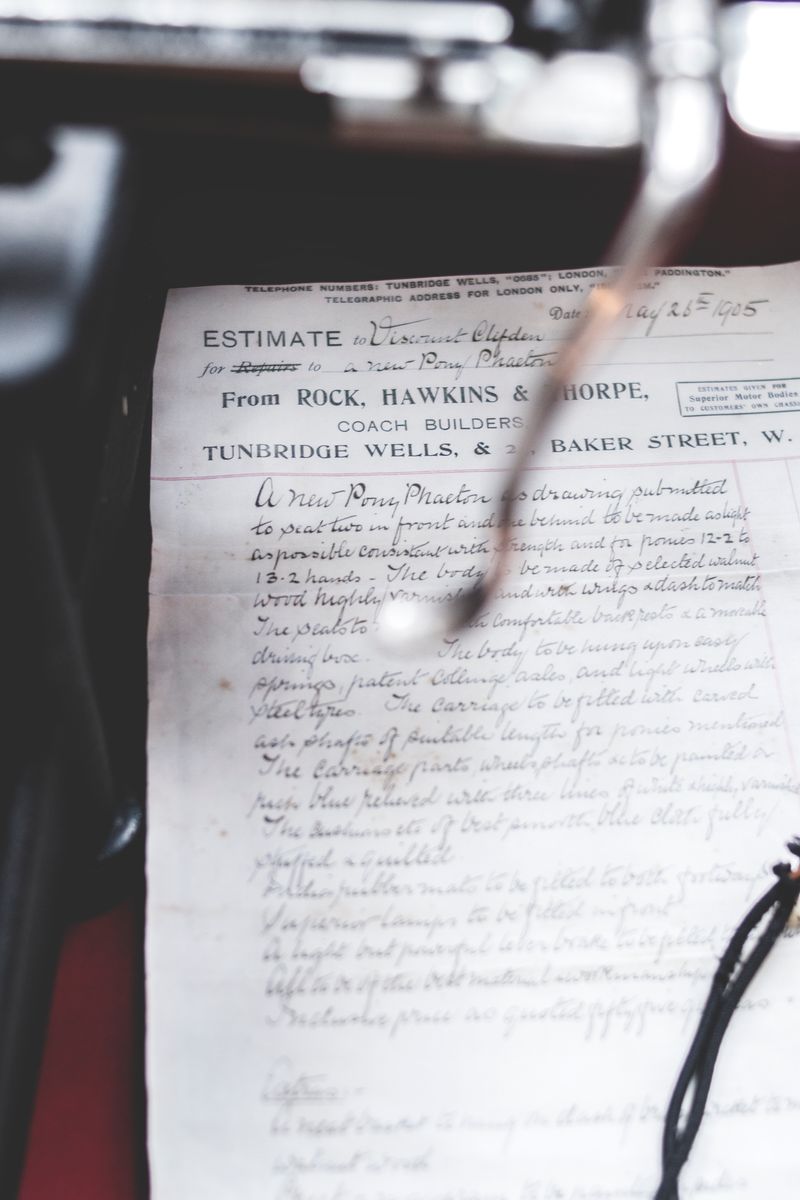 TELEPHONE NUMBERS: TUNBRIDGE WELLS, "0685"; LONDON, PADDINGTON."
TELEGRAPHIC ADDRESS FOR LONDON ONLY,
Date May 26th 1905
ESTIMATE to Viscount Clifden
for Repairs to a new Pony Phaeton
From ROCK, HAWKINS & THORPE,
ESTIMATES GIVEN FOR
Superior Motor Bodies
TO CUSTOMERS' OWN CHASSIS
COACH BUILDERS,
TUNBRIDGE WELLS, & BAKER STREET, W.
A new Pony Phaeton as drawing submitted
to seat two in front and one behind to be made as light
as possible consistent with strength and for ponies 12-2 to
13-2 hands - The body to be made of selected walnut
wood highly varnished and with wings & dash to match
The seats to with comfortable backrests & a moveable
driving box. The body to be hung upon easy
springs, patent collinge axles, and light wheels with
steel tyres. The carriage to be fitted with carved
ash shafts of suitable length for ponies mentioned
The carriage parts, wheels, shafts &c to be painted a
rich blue relieved with three lines of white & highly varnished
The cushions etc of best smooth blue cloth fully
stuffed & quilted
India rubber mats to be fitted to both footways
Superior lamps to be fitted in front
A light but powerful lever brake to be fitted
All to be of the best material & workmanship
Inclusive price as quoted fifty five guineas
Extras:-
A neat basket to hang on dash
walnut wood